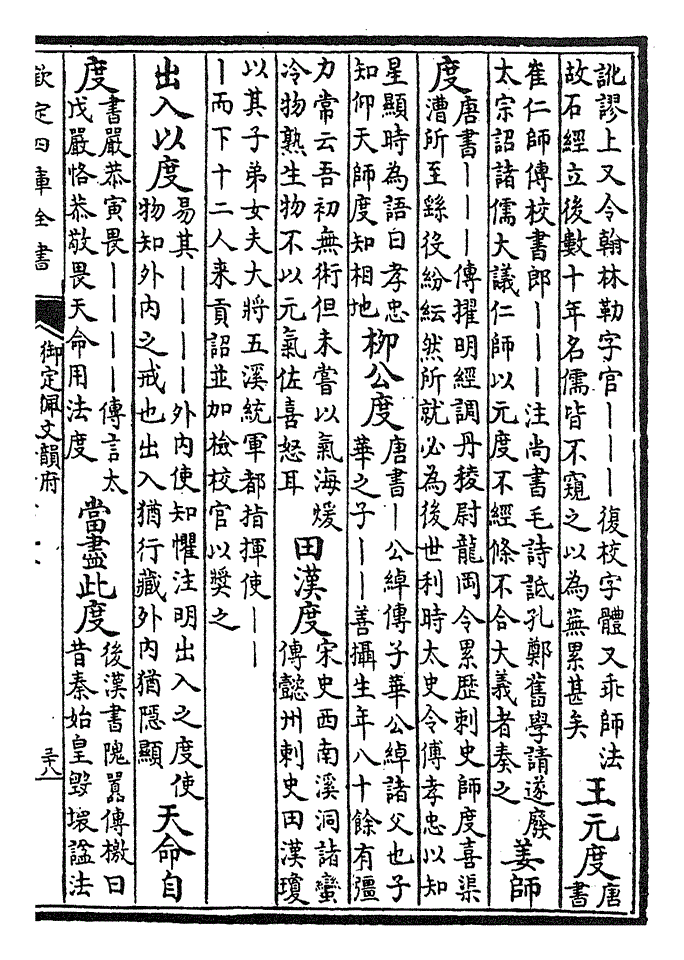 訛謬上又令翰林勒字官丨丨丨復校字體又乖師法
故石經立後數十年名儒皆不窺之以為蕪累甚矣
王元度
唐
書
崔仁師傳校書郎丨丨丨注尚書毛詩詆孔鄭舊學請遂廢
太宗詔諸儒大議仁師以元度不經條不合大義者奏之
姜師
度
唐書丨丨丨傳擢明經調丹稜尉龍岡令累歷刺史師度喜渠
漕所至繇役紛紜然所就必為後世利時太史令傅孝忠以知
星顯時為語曰孝忠
知仰天師度知相地
柳公度
唐書丨公綽傳子華公綽諸父也子
華之子丨丨善攝生年八十餘有彊
力常云吾初無術但未嘗以氣海煖
冷物熟生物不以元氣佐喜怒耳
田漢度
宋史西南溪洞諸蠻
傳懿州刺史田漢瓊
以其子弟女夫大將五溪統軍都指揮使丨丨
丨而下十二人来貢詔並加檢校官以獎之
出入以度
易其丨丨丨丨外内使知懼注明出入之度使
物知外内之戒也出入猶行藏外内猶隱顯
天命自
度
書嚴恭寅畏丨丨丨丨傳言太
戊嚴恪恭敬畏天命用法度
當盡此度
後漢書隗囂傳檄曰
昔秦始皇毀壞諡法
欽定四庫全書
御定佩文韻府